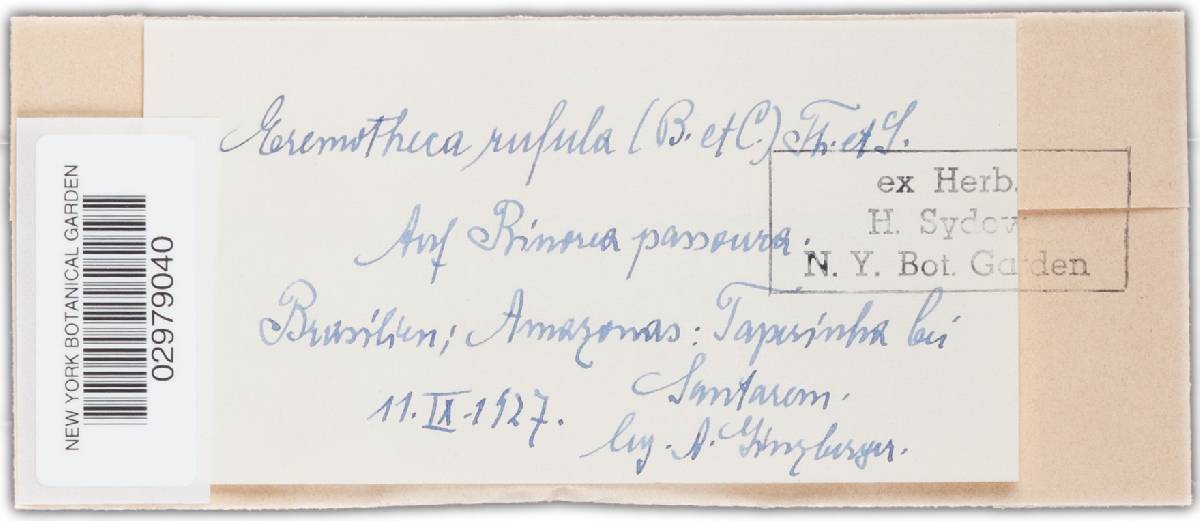 Eremotheca rufula (B. et C.) Th. et S.
Auf Rinorea passoura.
Brasilien; Amazonas: Taperinha bei
Santarem.
11.IX.1927.
leg. A. Ginzberger.
ex Herb.
H. Sydow
N. Y. Bot. Garden
NEW YORK BOTANICAL GARDEN
02979040